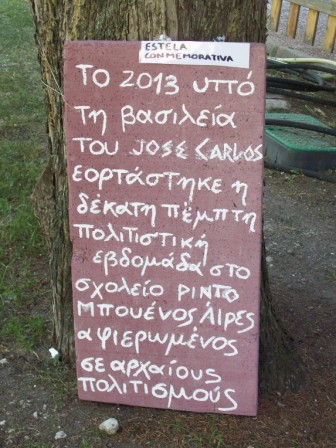 ESTELA
CONMEMORATIVA
ΤΟ 2013 υπό
τη βασιλεία
του JOSE CARLOS
εορτάστηκε η
δέκατη πέμπτη
πολιτιστική
εβδομάδα στο
σχολείο PINTO
Μπουένος Άιρες
αφιερωμένος
σε αρχαίους
πολιτισμούς